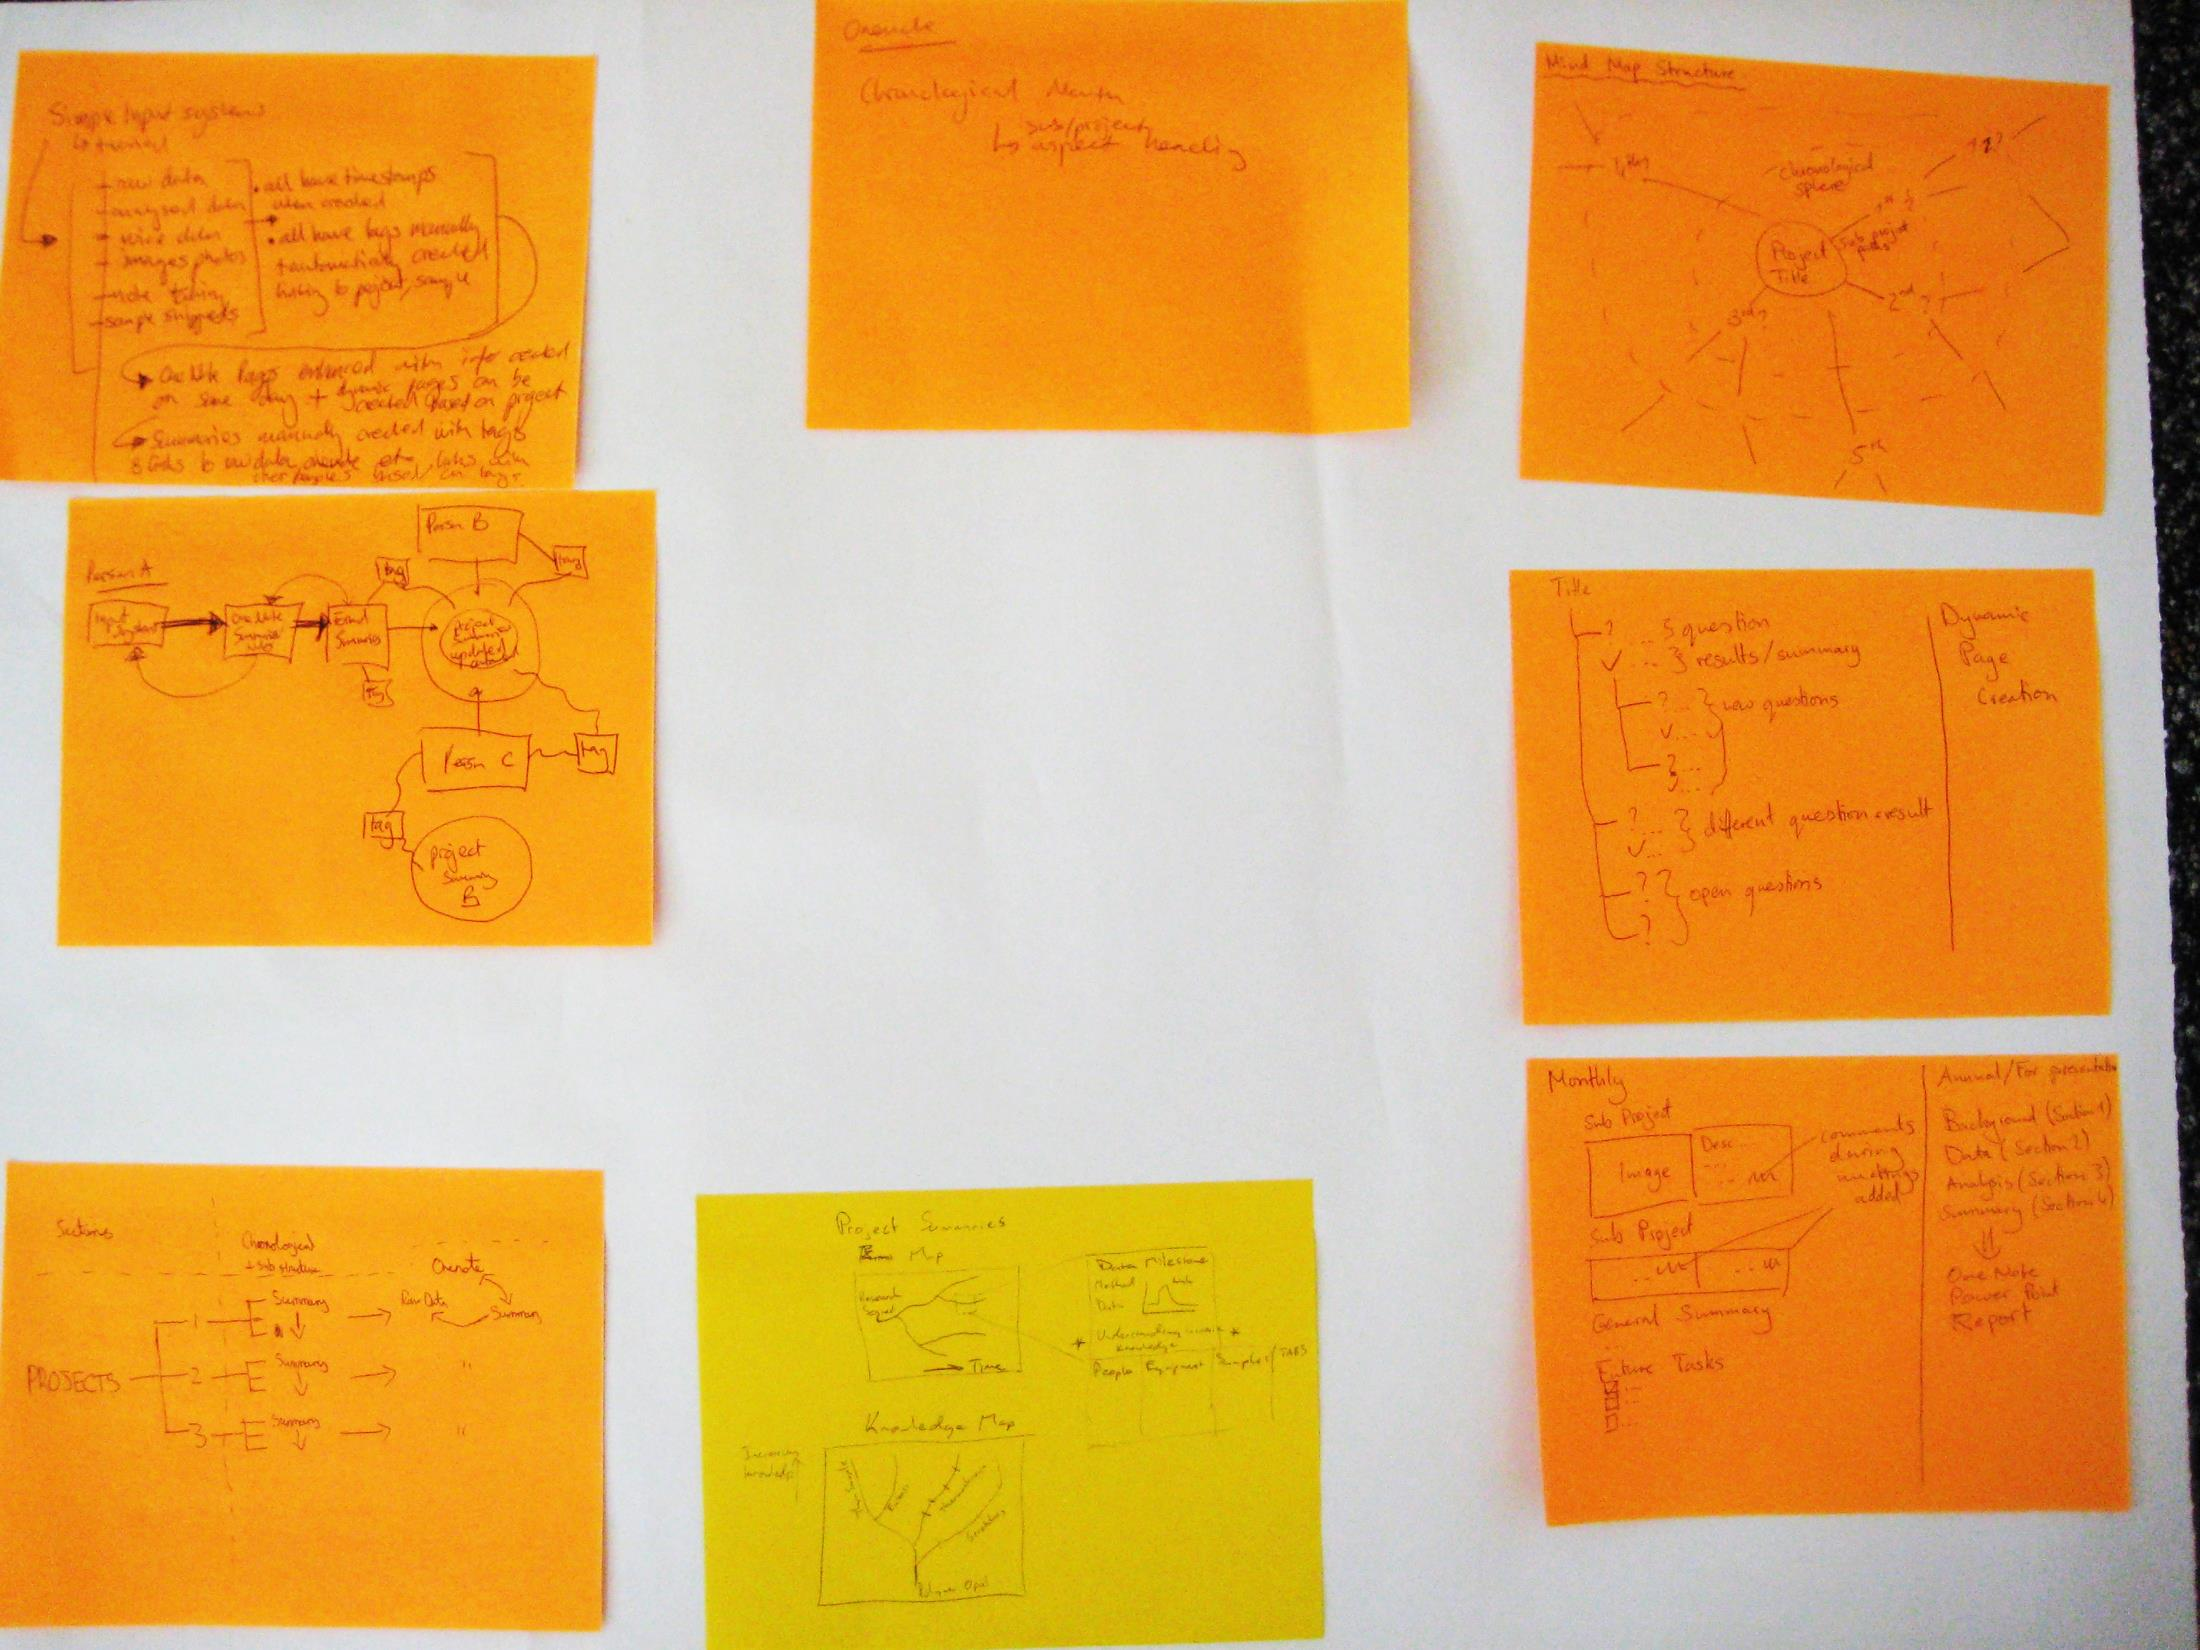 Simple Input systems
raw data
analysed data
voice data
images photos
note taking
sample snippets
• all have timestamps
when created
• all have tags manually
+ automatically created
linking to project, sample
OneNote Pages enhanced with info created
on same day + dynamic pages can be
created based on project
Summaries manually created with tags
& links to raw data, onenote etc links with
other people's based on tags
Onenote
Chronological Month
sub/project
↳ aspect heading
Mind Map Structure
Chronological
sphere
Project
Title
Sub project
1st
2nd ?
3rd ?
5th
Person A
Input
System
OneNote
Formal
Summaries
tag
tag
Person B
tag
project
Summaries
updated
Person C
tag
tag
project
Summary
B
Title
? ... } question
✓ ... } results/summary
? ... } new questions
✓ ...
? ...
✓ ...
? ... } different question + result
✓ ...
? } open questions
?
Dynamic
Page
Creation
Monthly
Sub Project
Image
Desc ...
comments
during
meetings
added
Sub Project
General Summary
...
Future Tasks
Annual/For presentation
Background (Section 1)
Data (Section 2)
Analysis (Section 3)
Summary (Section 4)
One Note
Power Point
Report
Sections
Chronological
+ Sub structure
Onenote
PROJECTS
1
Summary
Raw Data
Summary
2
Summary
"
3
Summary
"
Project Summaries
Map
Research
Time
Data Milestone
Method
Data
Understanding
knowledge
People
Equipment
Samples
TABS
Knowledge Map
Increasing
knowledge
Polymer Opal